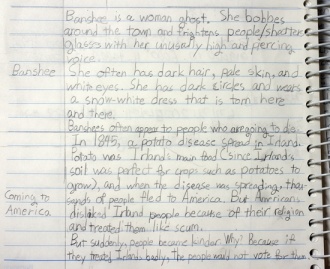 Banshee is a woman ghost. She bobbes
around the town and frightens people/shatter
glasses with her unusually high and piercing
voice.
Banshee She often has dark hair, pale skin, and
white eyes. She has dark circles and wears
a snow-white dress that is torn here
and there.
Banshees often appear to people who are going to die.
In 1845, a potato disease spread in Irland.
Potato was Irland's main food (Since Irland's
soil was perfect for crops such as potatoes to
grow), and when the disease was spreading, thou-
sands of people fled to America. But Americans
Coming to America disliked Irland people because of their religion
and treated them like scum.
But suddenly, people became kinder. Why? Because if
they treated Irland badly, the people would not vote for them